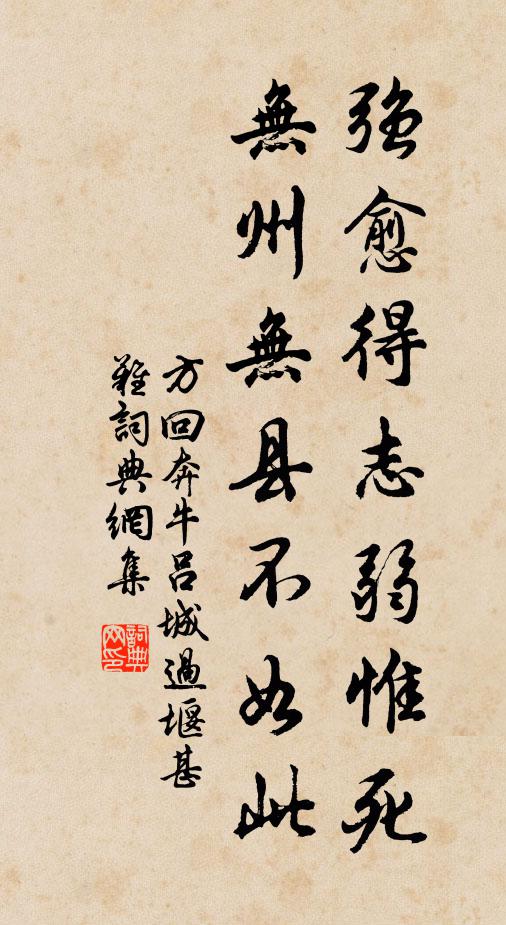 强愈得志弱惟死
無州無县不如此
方回奔牛吕城過堰甚
難詞典網集
詞典網印